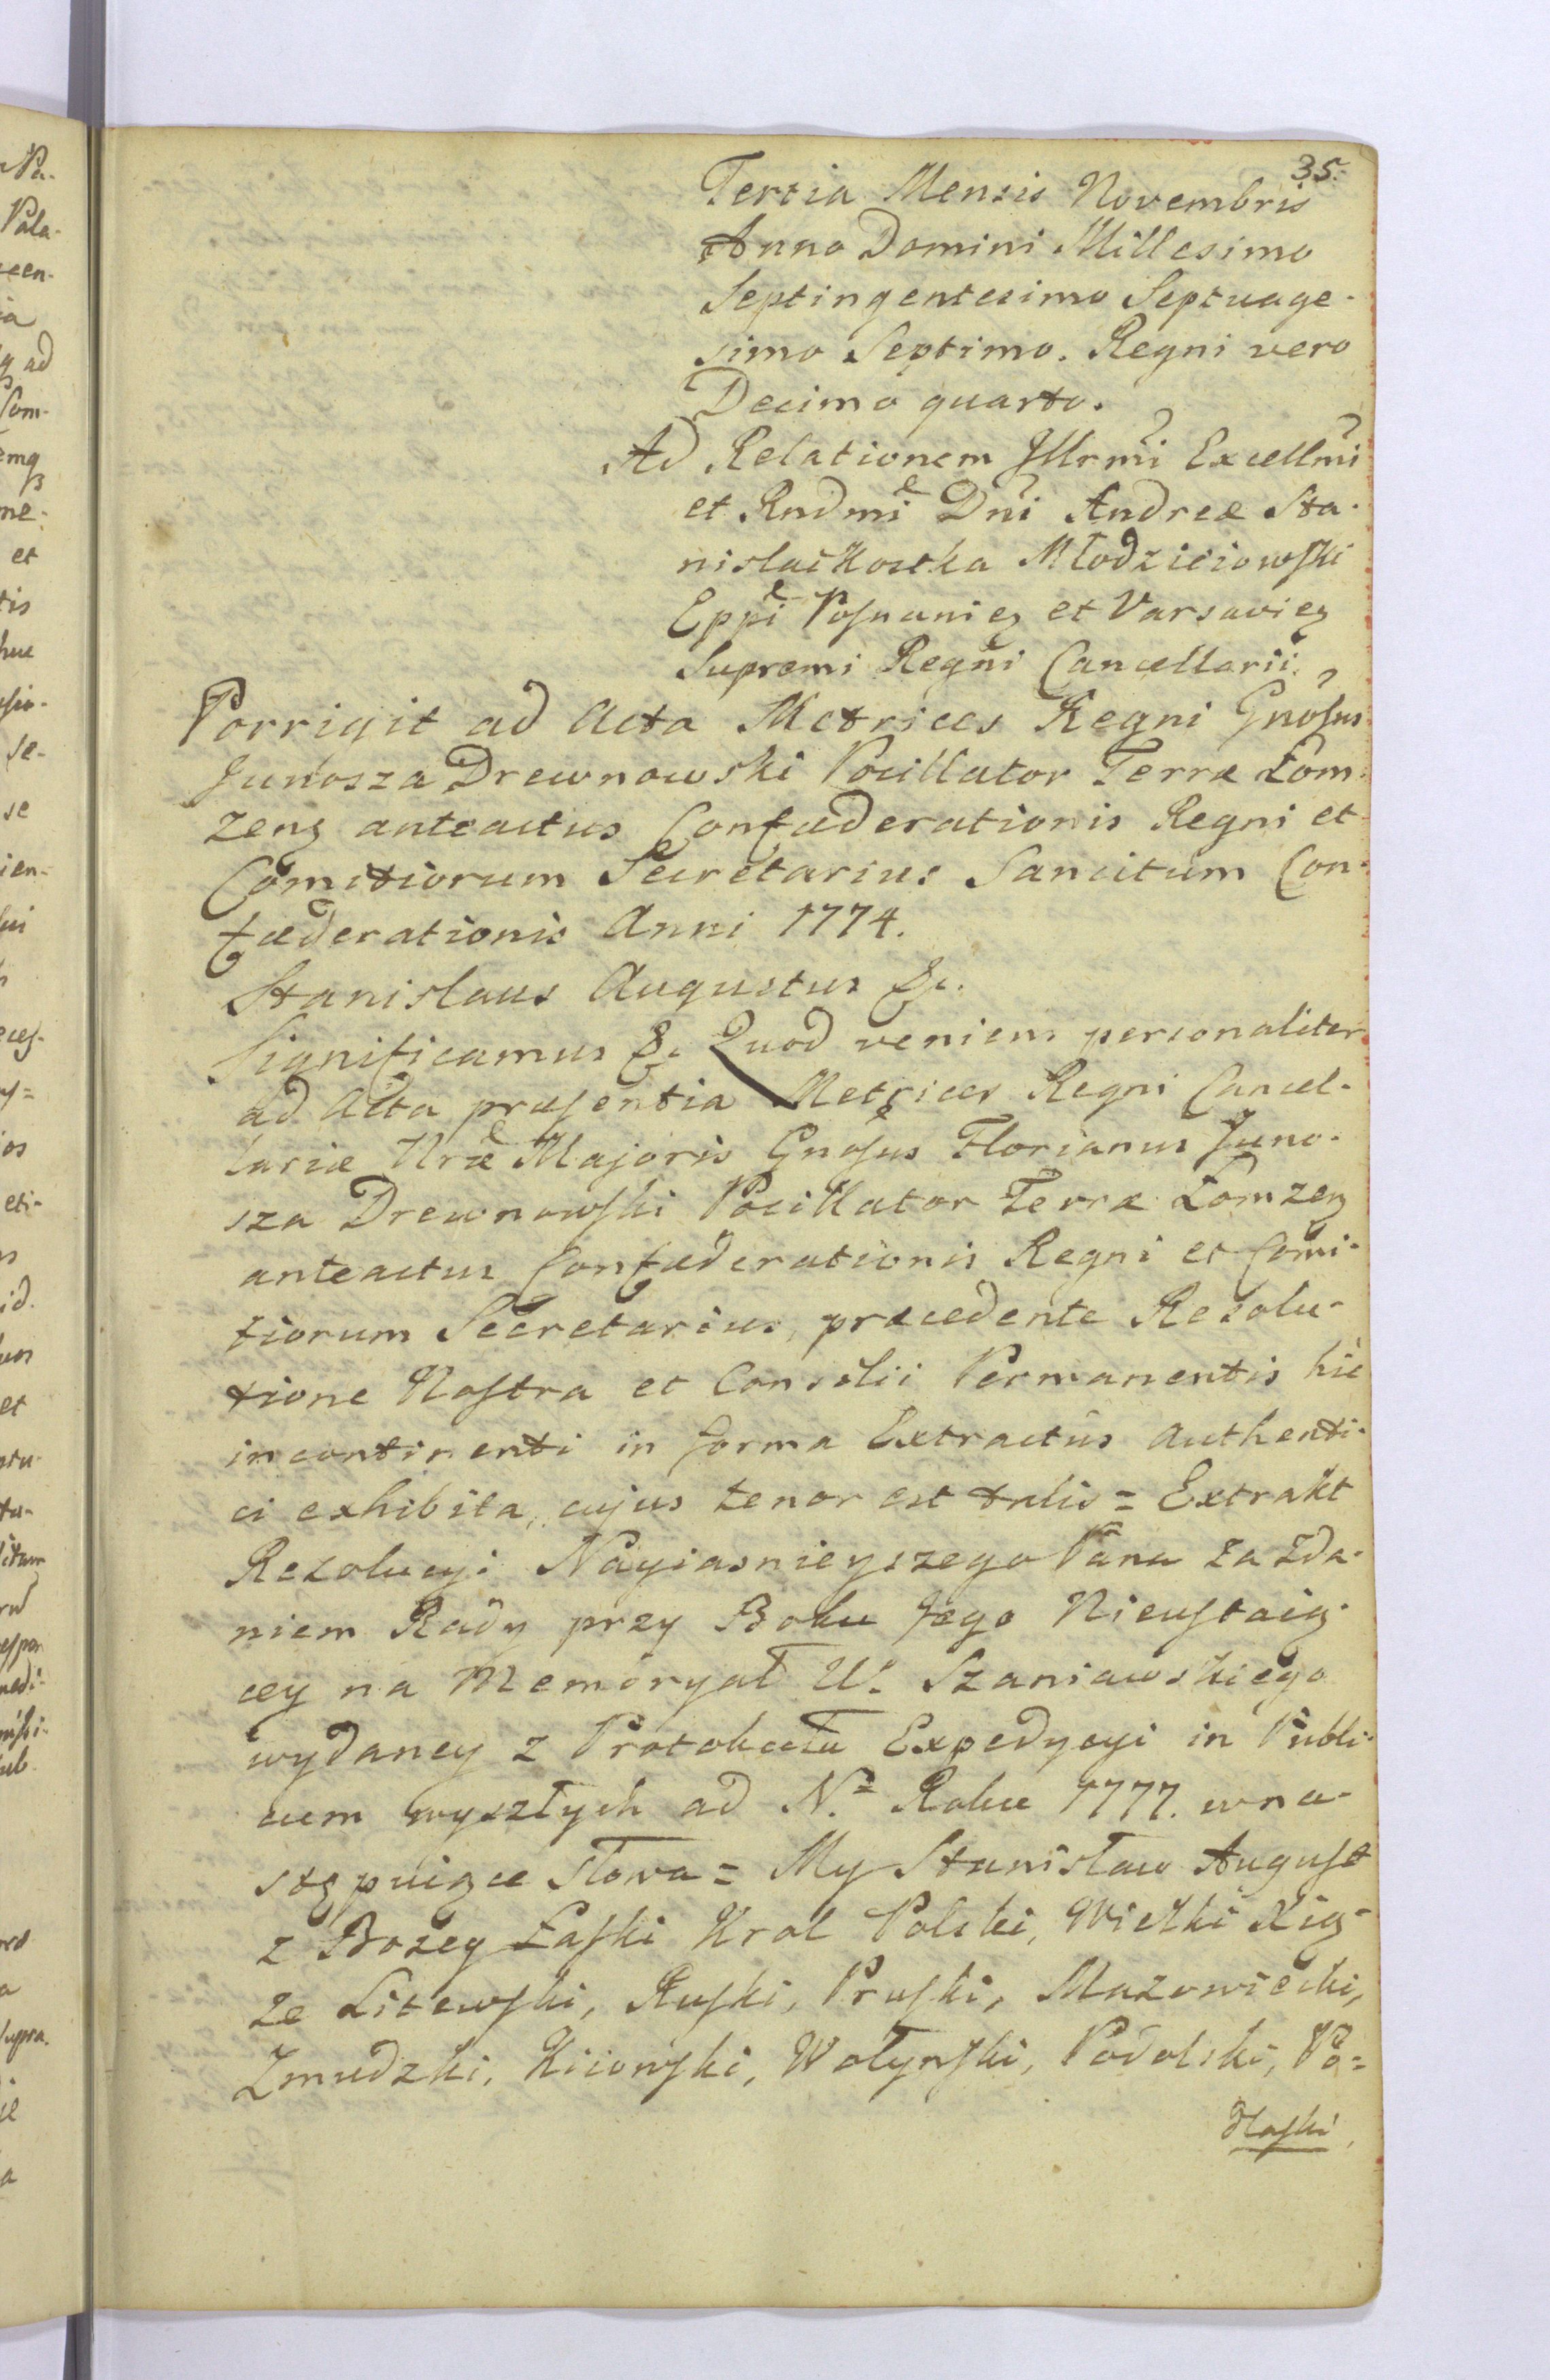 35.
Tertia Mensis Novembris
Anno Domini Millesimo
Septingentesimo Septuage-
simo Septimo. Regni vero
Decimo quarto.
Ad Relationem Illrmi Excellmi
et Rndmi Dni Andreæ Sta-
nislai Kostka Młodzieiowſki
Eppi Poſnanieꝫ et Varsavieꝫ
Supremi Regni Cancellarii.
Porrigit ad Acta Metrices Regni Gnoſus
Junosza Drewnowski Pocillator Terræ Łom-
zenꝫ anteactus Confæderationis Regni et
Comitiorum Secretarius Sancitum Con-
fæderationis Anni 1774.
Stanislaus Augustus &c.
Significamus &c. Quod veniens personaliter
ad Acta præſentia Metrices Regni Cancel-
lariæ Nræ Majoris Gnoſus Florianus Juno-
sza Drewnowſki Pocillator Terræ Łomzenꝫ
anteactus Confæderationis Regni et Comi-
tiorum Secretarius, præcedente Resolu-
tione Noſtra et Consilii Permanentis hic
in continenti in forma Extractus Authenti-
ci exhibita, cujus tenor est talis = Extrakt
Rezolucyi Nayiasnieyszego Pana za Zda-
niem Rady przy Boku Jego Nieuſtaią-
cey na Memoryał U. Szaniawskiego
wydaney z Protokułu Expedycyi in Publi-
cum wyszłych ad N.= Roku 1777. w na-
stępuiące słowa = My Stanisław Auguſt
z Bożey Łaſki Krol Polski, Wielki Xią-
że Litewſki, Ruſki, Pruſki, Mazowiecki,
Zmudzki, Kiiowſki, Wołynſki, Podolski, Po=
dlaſki,